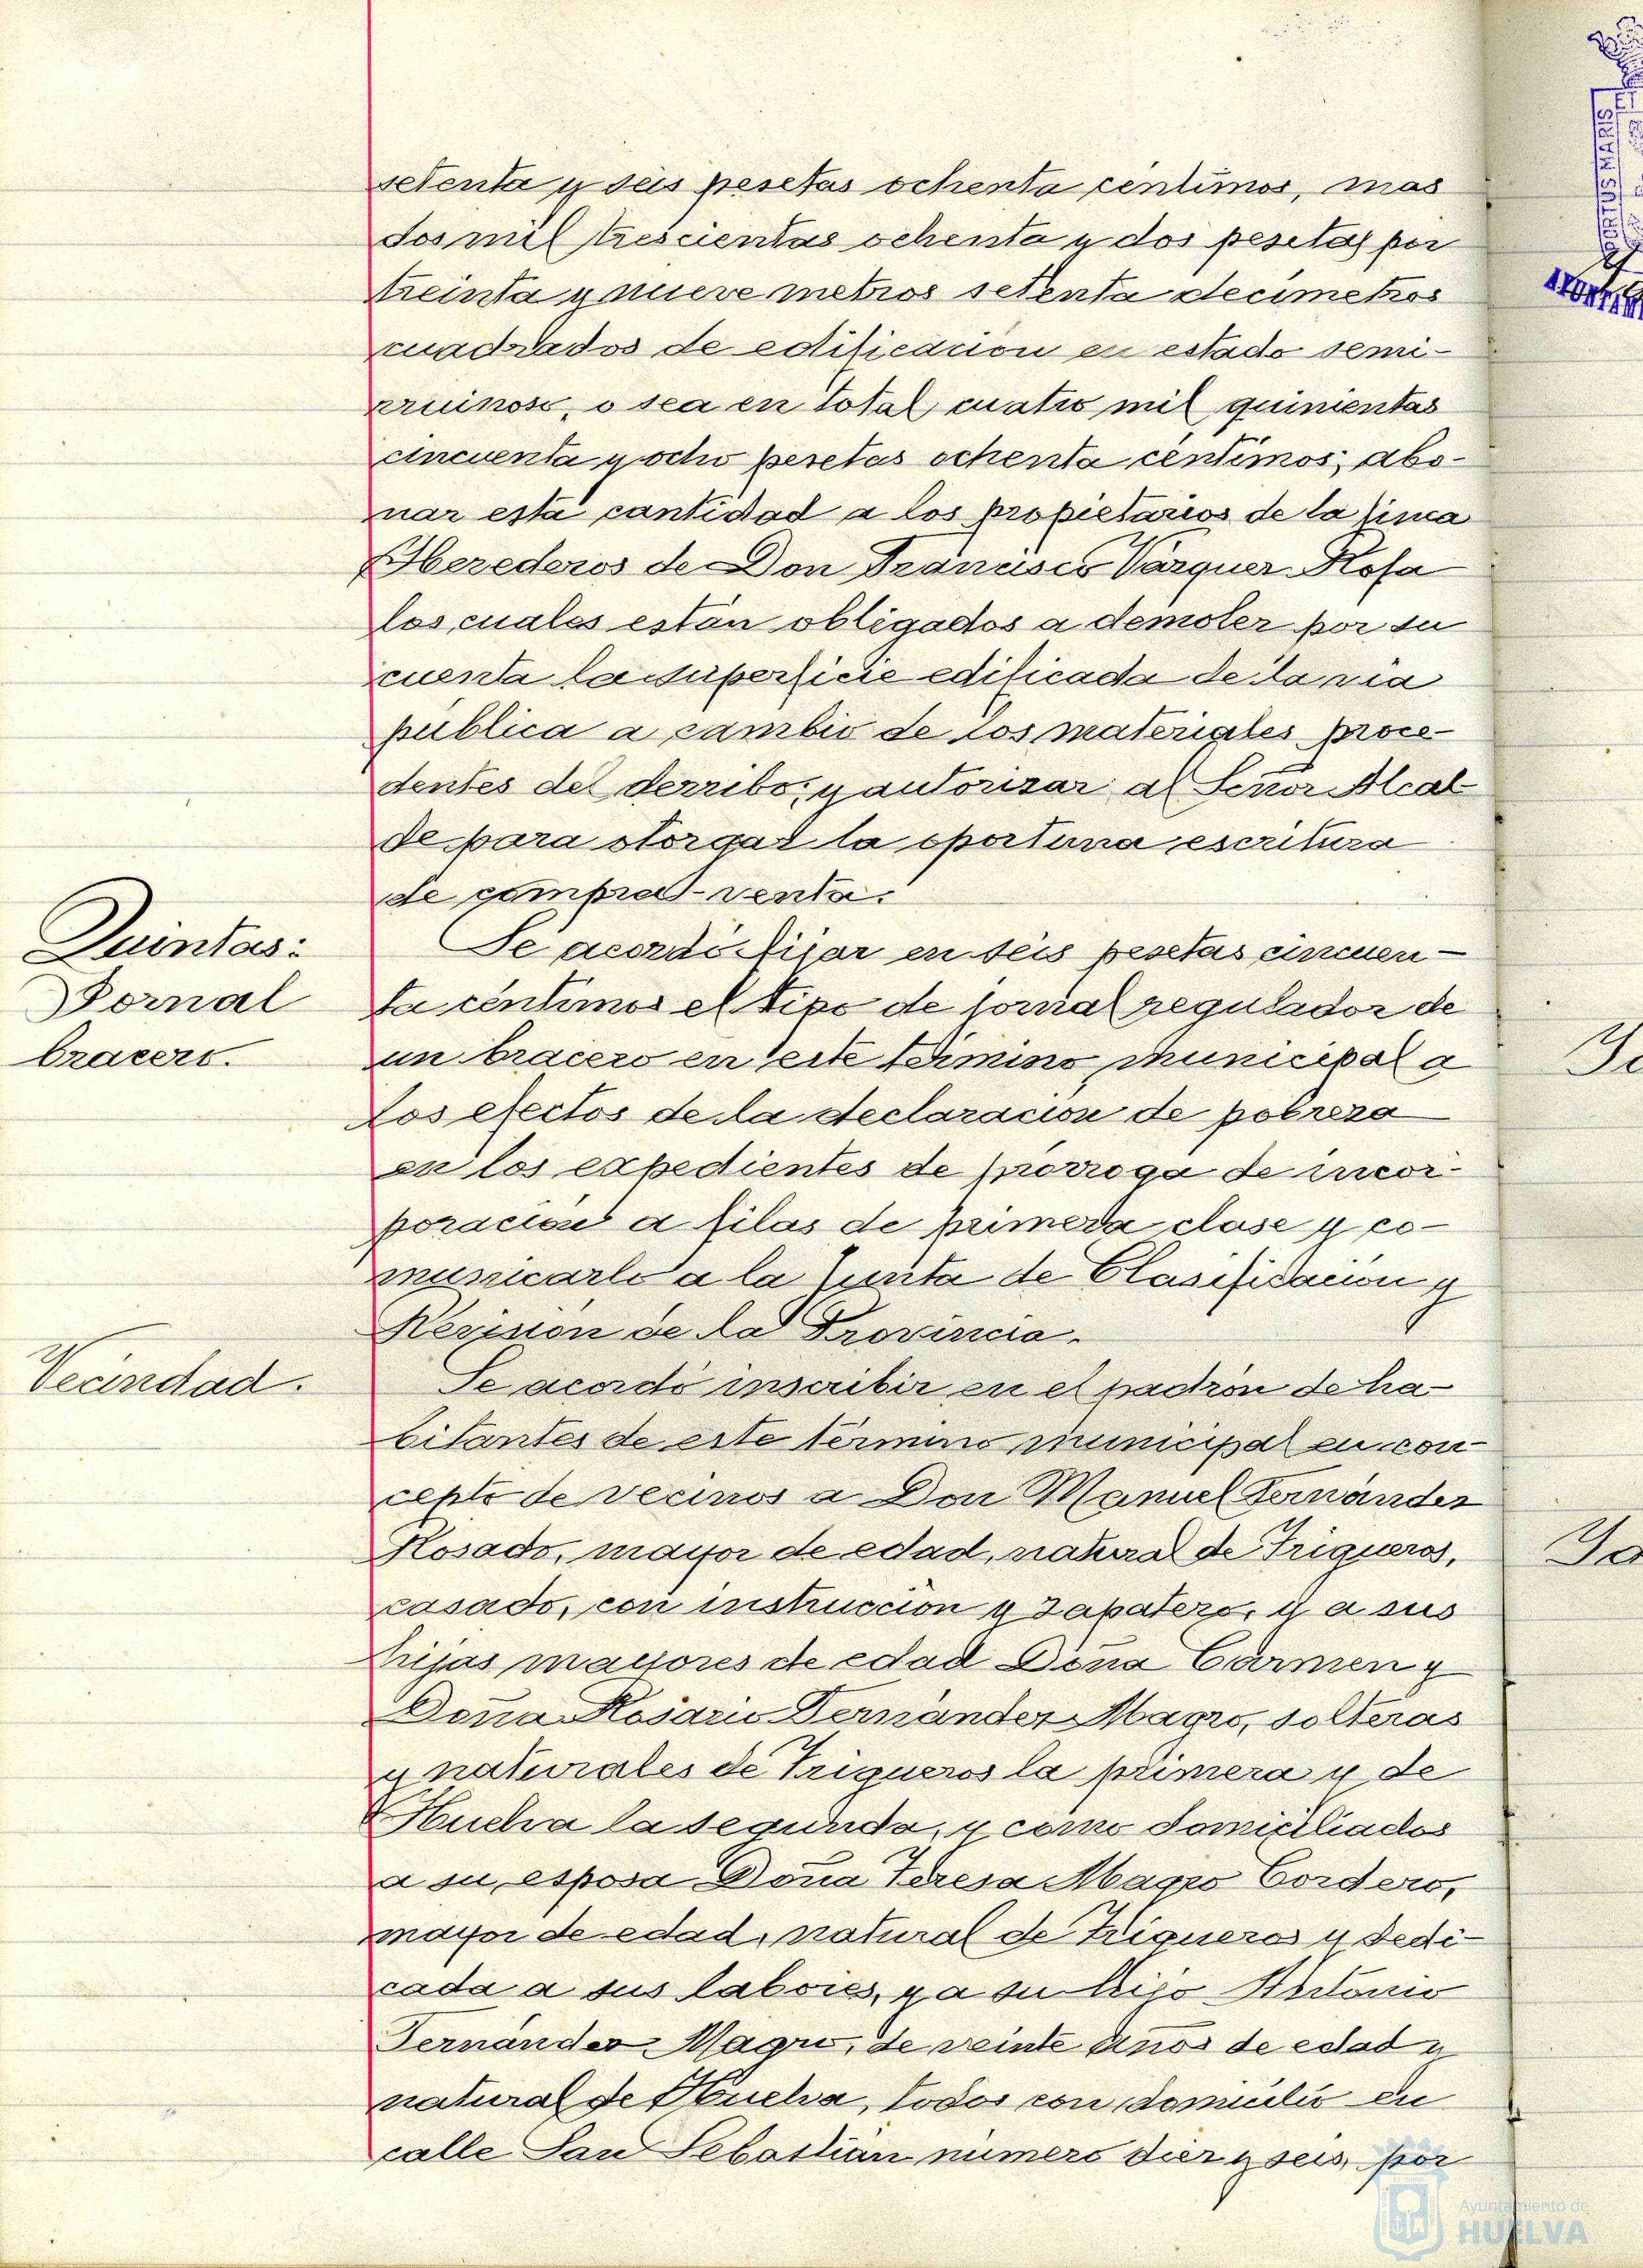 setenta y seis pesetas ochenta centimos, mas
dos mil trescientas ochenta y dos pesetas por
treinta y nueve metros setenta decimetros
cuadrados de edificación en estado semi-
rruinoso, o sea en total cuatro mil quinientas
cincuenta y ocho pesetas ochenta centimos; abo-
nar esta cantidad a los propietarios de la finca
Herederos de Don Francisco Vazquez Rosa
los cuales están obligados a demoler por su
cuenta la superficie edificada de la via
publica a cambio de los materiales proce-
dentes del derribo; y autorizar al Señor Alcal-
de para otorgar la oportuna escritura
de compra-venta.
Quintas:
Jornal
bracero.
Se acordó fijar en seis pesetas cincuen-
ta centimos el tipo de jornal regulador de
un bracero en este término municipal a
los efectos de la declaracion de pobreza
en los expedientes de prorroga de incor-
poracion a filas de primera clase y co-
municarlo a la Junta de Clasificacion y
Revision de la Provincia.
Vecindad.
Se acordó inscribir en el padrón de ha-
bitantes de este término municipal en con-
cepto de vecinos a Don Manuel Fernández
Rosado, mayor de edad, natural de Trigueros,
casado, con instruccion y zapatero, y a sus
hijas mayores de edad Doña Carmen y
Doña Rosario Fernández Magro, solteras
y naturales de Trigueros la primera y de
Huelva la segunda, y como domiciliados
a su esposa Doña Teresa Magro Cordero,
mayor de edad, natural de Trigueros y dedi-
cada a sus labores, y a su hijo Antonio
Fernández Magro, de veinte años de edad y
natural de Huelva, todos con domicilio en
calle San Sebastián numero diez y seis, por
PORTUS MARIS ET
AYUNTAM
Ayuntamiento de
HUELVA